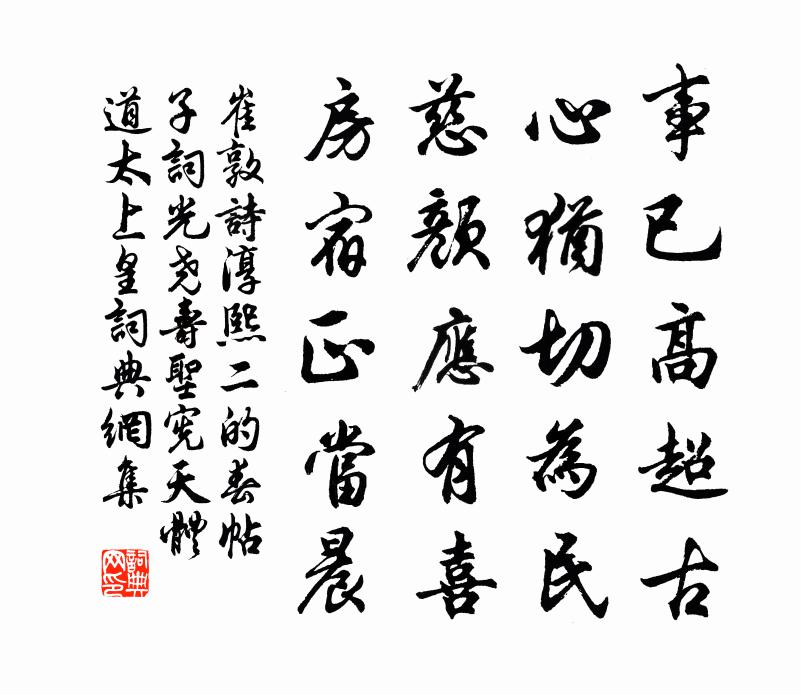 事已高超古
心猶切為民
慈顏應有喜
房宿正當晨
崔敦詩淳熙二的春帖
子詞光堯壽聖憲天體
道太上皇詞典網集
詞典網印